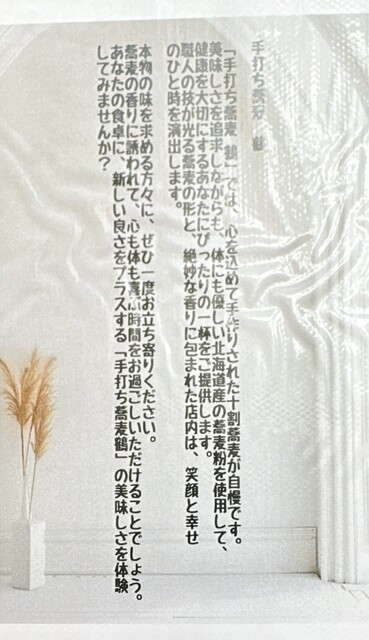 手打ち蕎麦 鶴
「手打ち蕎麦 鶴」では、心を込めて手作りされた十割蕎麦が自慢です。
美味しさを追求しながらも、体にも優しい北海道産の蕎麦粉を使用して、
健康を大切にするあなたにぴったりの一杯をご提供します。
職人の技が光る蕎麦の形と、絶妙な香りに包まれた店内は、笑顔と幸せ
のひと時を演出します。
本物の味を求める方々に、ぜひ一度お立ち寄りください。
蕎麦の香りに誘われて、心も体も喜ぶ時間をお過ごしいただけることでしょう。
あなたの食卓に、新しい良さをプラスする「手打ち蕎麦鶴」の美味しさを体験
してみませんか？